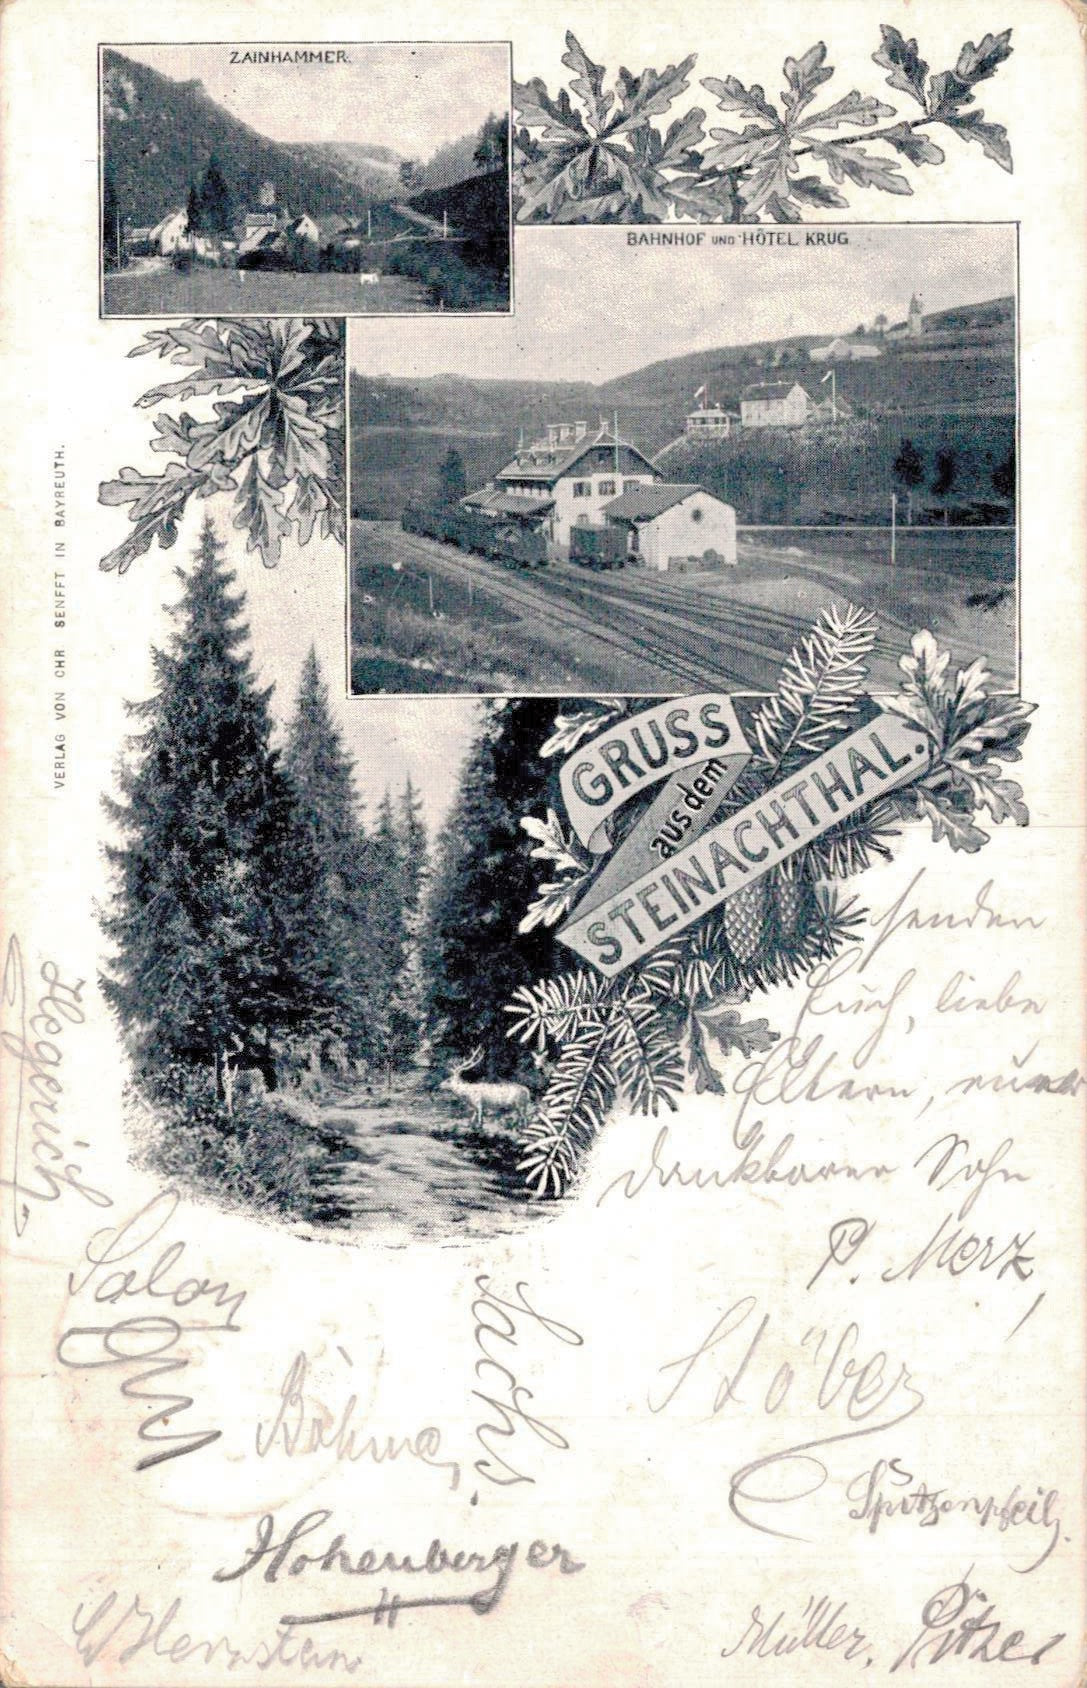 ZAINHAMMER.
BAHNHOF UND HÔTEL KRUG
VERLAG VON CHR SENFFT IN BAYREUTH.
GRUSS
aus dem
STEINACHTHAL.
senden
Euch, liebe
Eltern, euer
dankbarer Sohn
P. Merz,
Hegerich.
Salon
Stöber
Sachs.
Böhme,
Spitzenpfeil,
Hohenberger
Müller. Pitzer